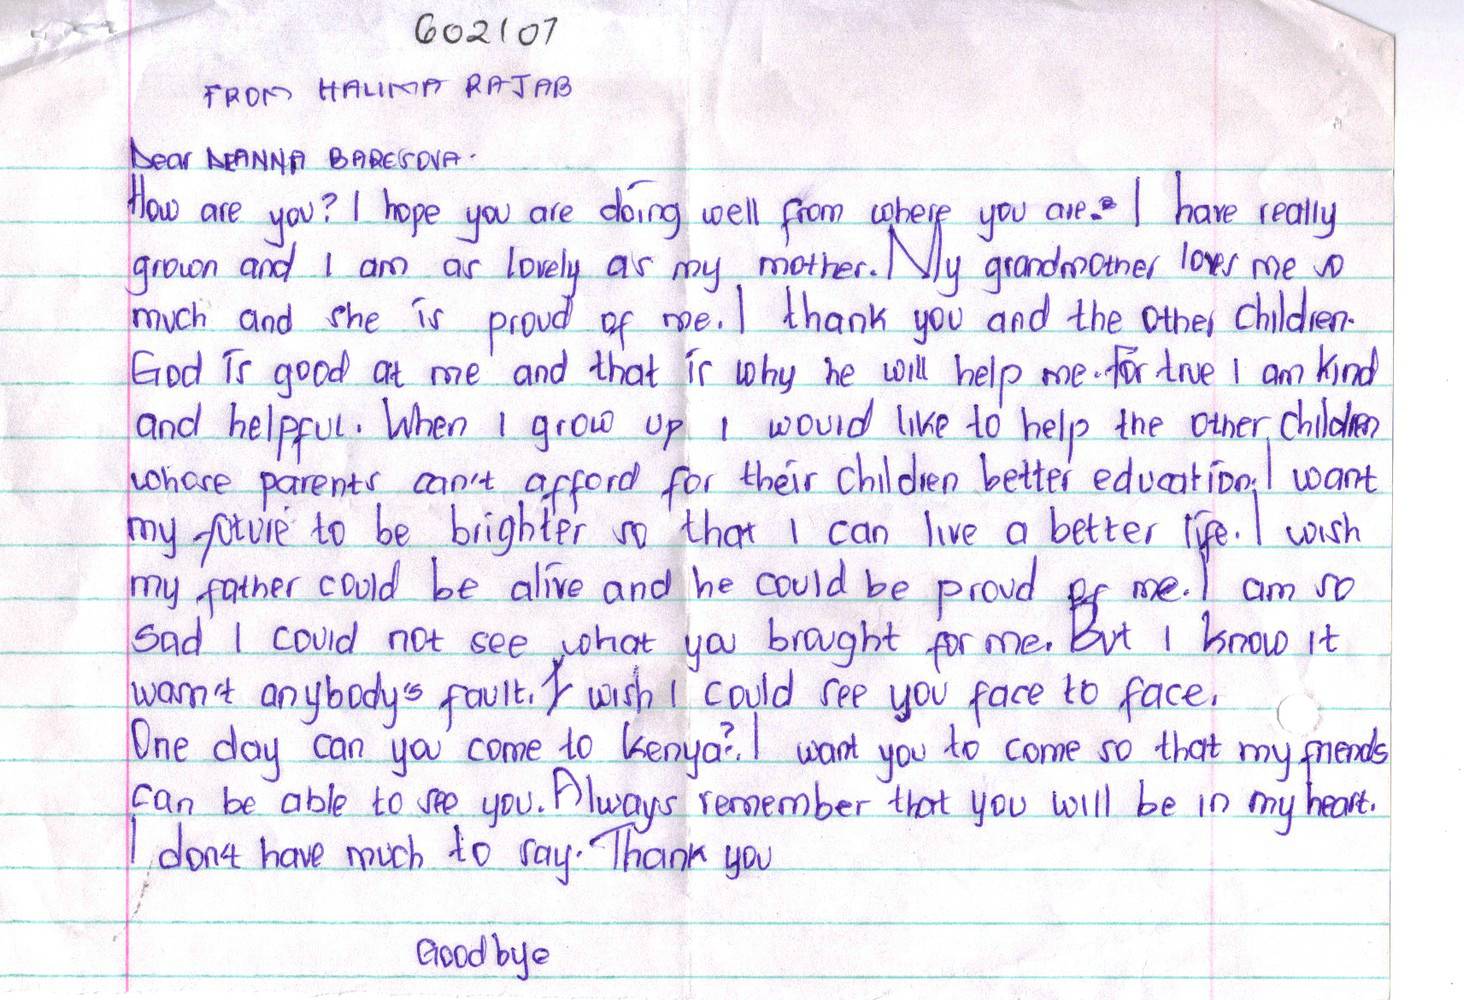 602107
FROM HALIMA RAJAB
Dear DEANNA BARESOVA.
How are you? I hope you are doing well from where you are. I have really
grown and I am as lovely as my mother. My grandmother loves me so
much and she is proud of me. I thank you and the other children.
God is good at me and that is why he will help me. For true I am kind
and helpful. When I grow up I would like to help the other children
whose parents can't afford for their children better education. I want
my future to be brighter so that I can live a better life. I wish
my father could be alive and he could be proud of me. I am so
sad I could not see what you brought for me. But I know it
wasn't anybody's fault. I wish I could see you face to face.
One day can you come to Kenya?. I want you to come so that my friends
can be able to see you. Always remember that you will be in my heart.
I don't have much to say. Thank you
Goodbye